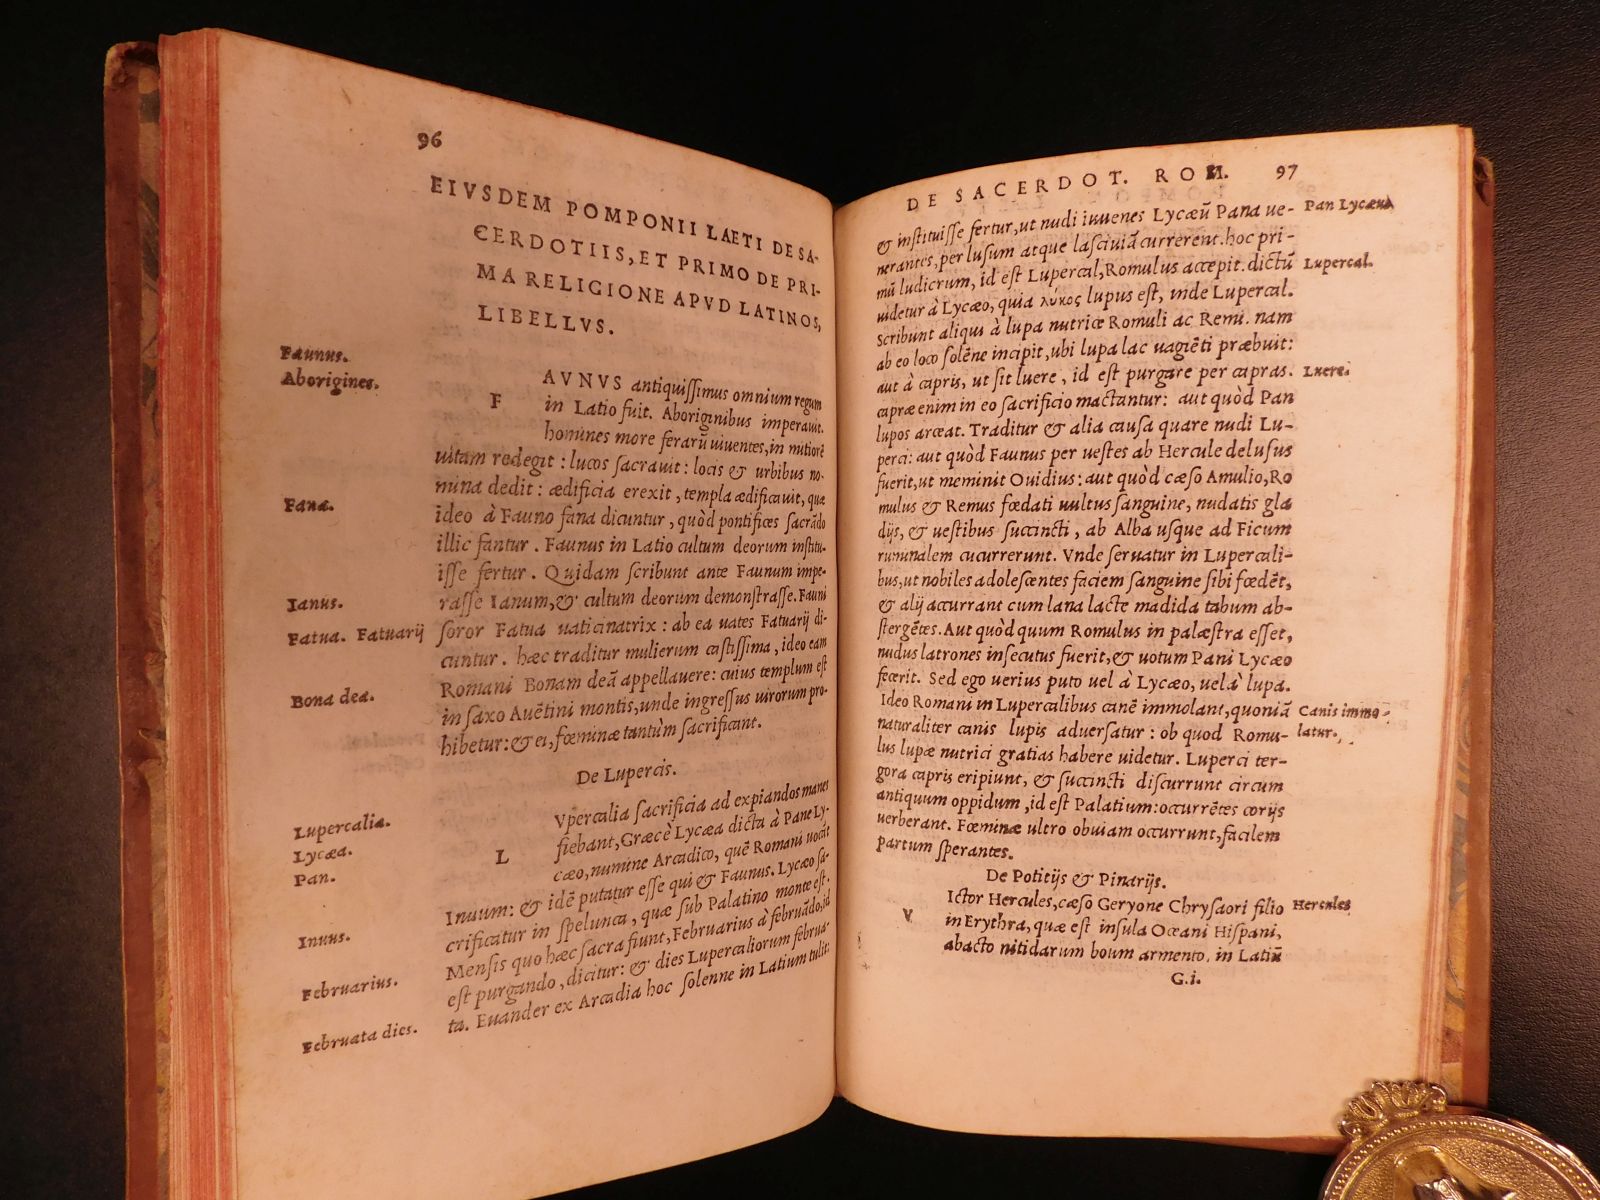 96
EIVSDEM POMPONII LAETI DE SA-
CERDOTIIS, ET PRIMO DE PRI-
MA RELIGIONE APVD LATINOS,
LIBELLVS.
Faunus.
Aborigines.
F AVNVS antiquiſſimus omnium regum
in Latio fuit. Aboriginibus imperauit.
homines more ferarū uiuentes, in mitiorē
uitam redegit: lucos ſacrauit: locis & urbibus no-
mina dedit: ædificia erexit, templa ædificauit, quæ
Fana.
ideo à Fauno fana dicuntur, quòd pontifices ſacrādo
illic fantur. Faunus in Latio cultum deorum inſtitu-
iſſe fertur. Quidam ſcribunt ante Faunum impe-
Ianus.
raſſe Ianum, & cultum deorum demonſtraſſe. Fauni
Fatua. Fatuarij
ſoror Fatua uaticinatrix: ab ea uates Fatuarij di-
cuntur. hæc traditur mulierum caſtiſſima, ideo eam
Bona dea.
Romani Bonam deā appellauere: cuius templum eſt
in ſaxo Auētini montis, unde ingreſſus uirorum pro-
hibetur: & ei, fœminæ tantùm ſacrificant.
De Lupercis.
Lupercalia.
L Vpercalia ſacrificia ad expiandos manes
Lycæa.
fiebant, Græcè Lycæa dicta à Pane Ly-
Pan.
cæo, numine Arcadico, quē Romani uocāt
Inuum: & idē putatur eſſe qui & Faunus. Lycæo ſa-
Inuus.
crificatur in ſpelunca, quæ ſub Palatino monte eſt.
Menſis quo hæc ſacra fiunt, Februarius à februādo, id
Februarius.
eſt purgando, dicitur: & dies Lupercaliorum februa-
Februata dies.
ta. Euander ex Arcadia hoc ſolenne in Latium tulit:
DE SACERDOT. ROM. 97
& inſtituiſſe fertur, ut nudi iuuenes Lycæū Pana ue-
Pan Lycæus
nerantes, per luſum atque laſciuiā currerent. hoc pri-
mū ludicrum, id eſt Lupercal, Romulus accepit. dictū
Lupercal.
uidetur à Lycæo, quia λύκος lupus eſt, inde Lupercal.
Scribunt aliqui à lupa nutrice Romuli ac Remi. nam
ab eo loco ſolēne incipit, ubi lupa lac uagiēti præbuit:
aut à capris, ut ſit luere, id eſt purgare per capras.
Luere.
capræ enim in eo ſacrificio mactantur: aut quòd Pan
lupos arceat. Traditur & alia cauſa quare nudi Lu-
perci: aut quòd Faunus per ueſtes ab Hercule deluſus
fuerit, ut meminit Ouidius: aut quòd cæſo Amulio, Ro
mulus & Remus fœdati uultus ſanguine, nudatis gla
dijs, & ueſtibus ſuccincti, ab Alba uſque ad Ficum
ruminalem cucurrerunt. Vnde ſeruatur in Lupercali-
bus, ut nobiles adoleſcentes faciem ſanguine ſibi fœdēt,
& alij accurrant cum lana lacte madida tabum ab-
ſtergētes. Aut quòd quum Romulus in palæſtra eſſet,
nudus latrones inſecutus fuerit, & uotum Pani Lycæo
fecerit. Sed ego uerius puto uel à Lycæo, uel à lupa.
Ideo Romani in Lupercalibus canē immolant, quoniā
Canis immo-
latur.
naturaliter canis lupis aduerſatur: ob quod Romu-
lus lupæ nutrici gratias habere uidetur. Luperci ter-
gora capris eripiunt, & ſuccincti diſcurrunt circum
antiquum oppidum, id eſt Palatium: occurrētes corijs
uerberant. Fœminæ ultro obuiam occurrunt, facilem
partum ſperantes.
De Potitijs & Pinarijs.
V Ictor Hercules, cæſo Geryone Chryſaori filio
Hercules
in Erythra, quæ eſt inſula Oceani Hiſpani,
abacto nitidarum boum armento, in Latiū
G.i.